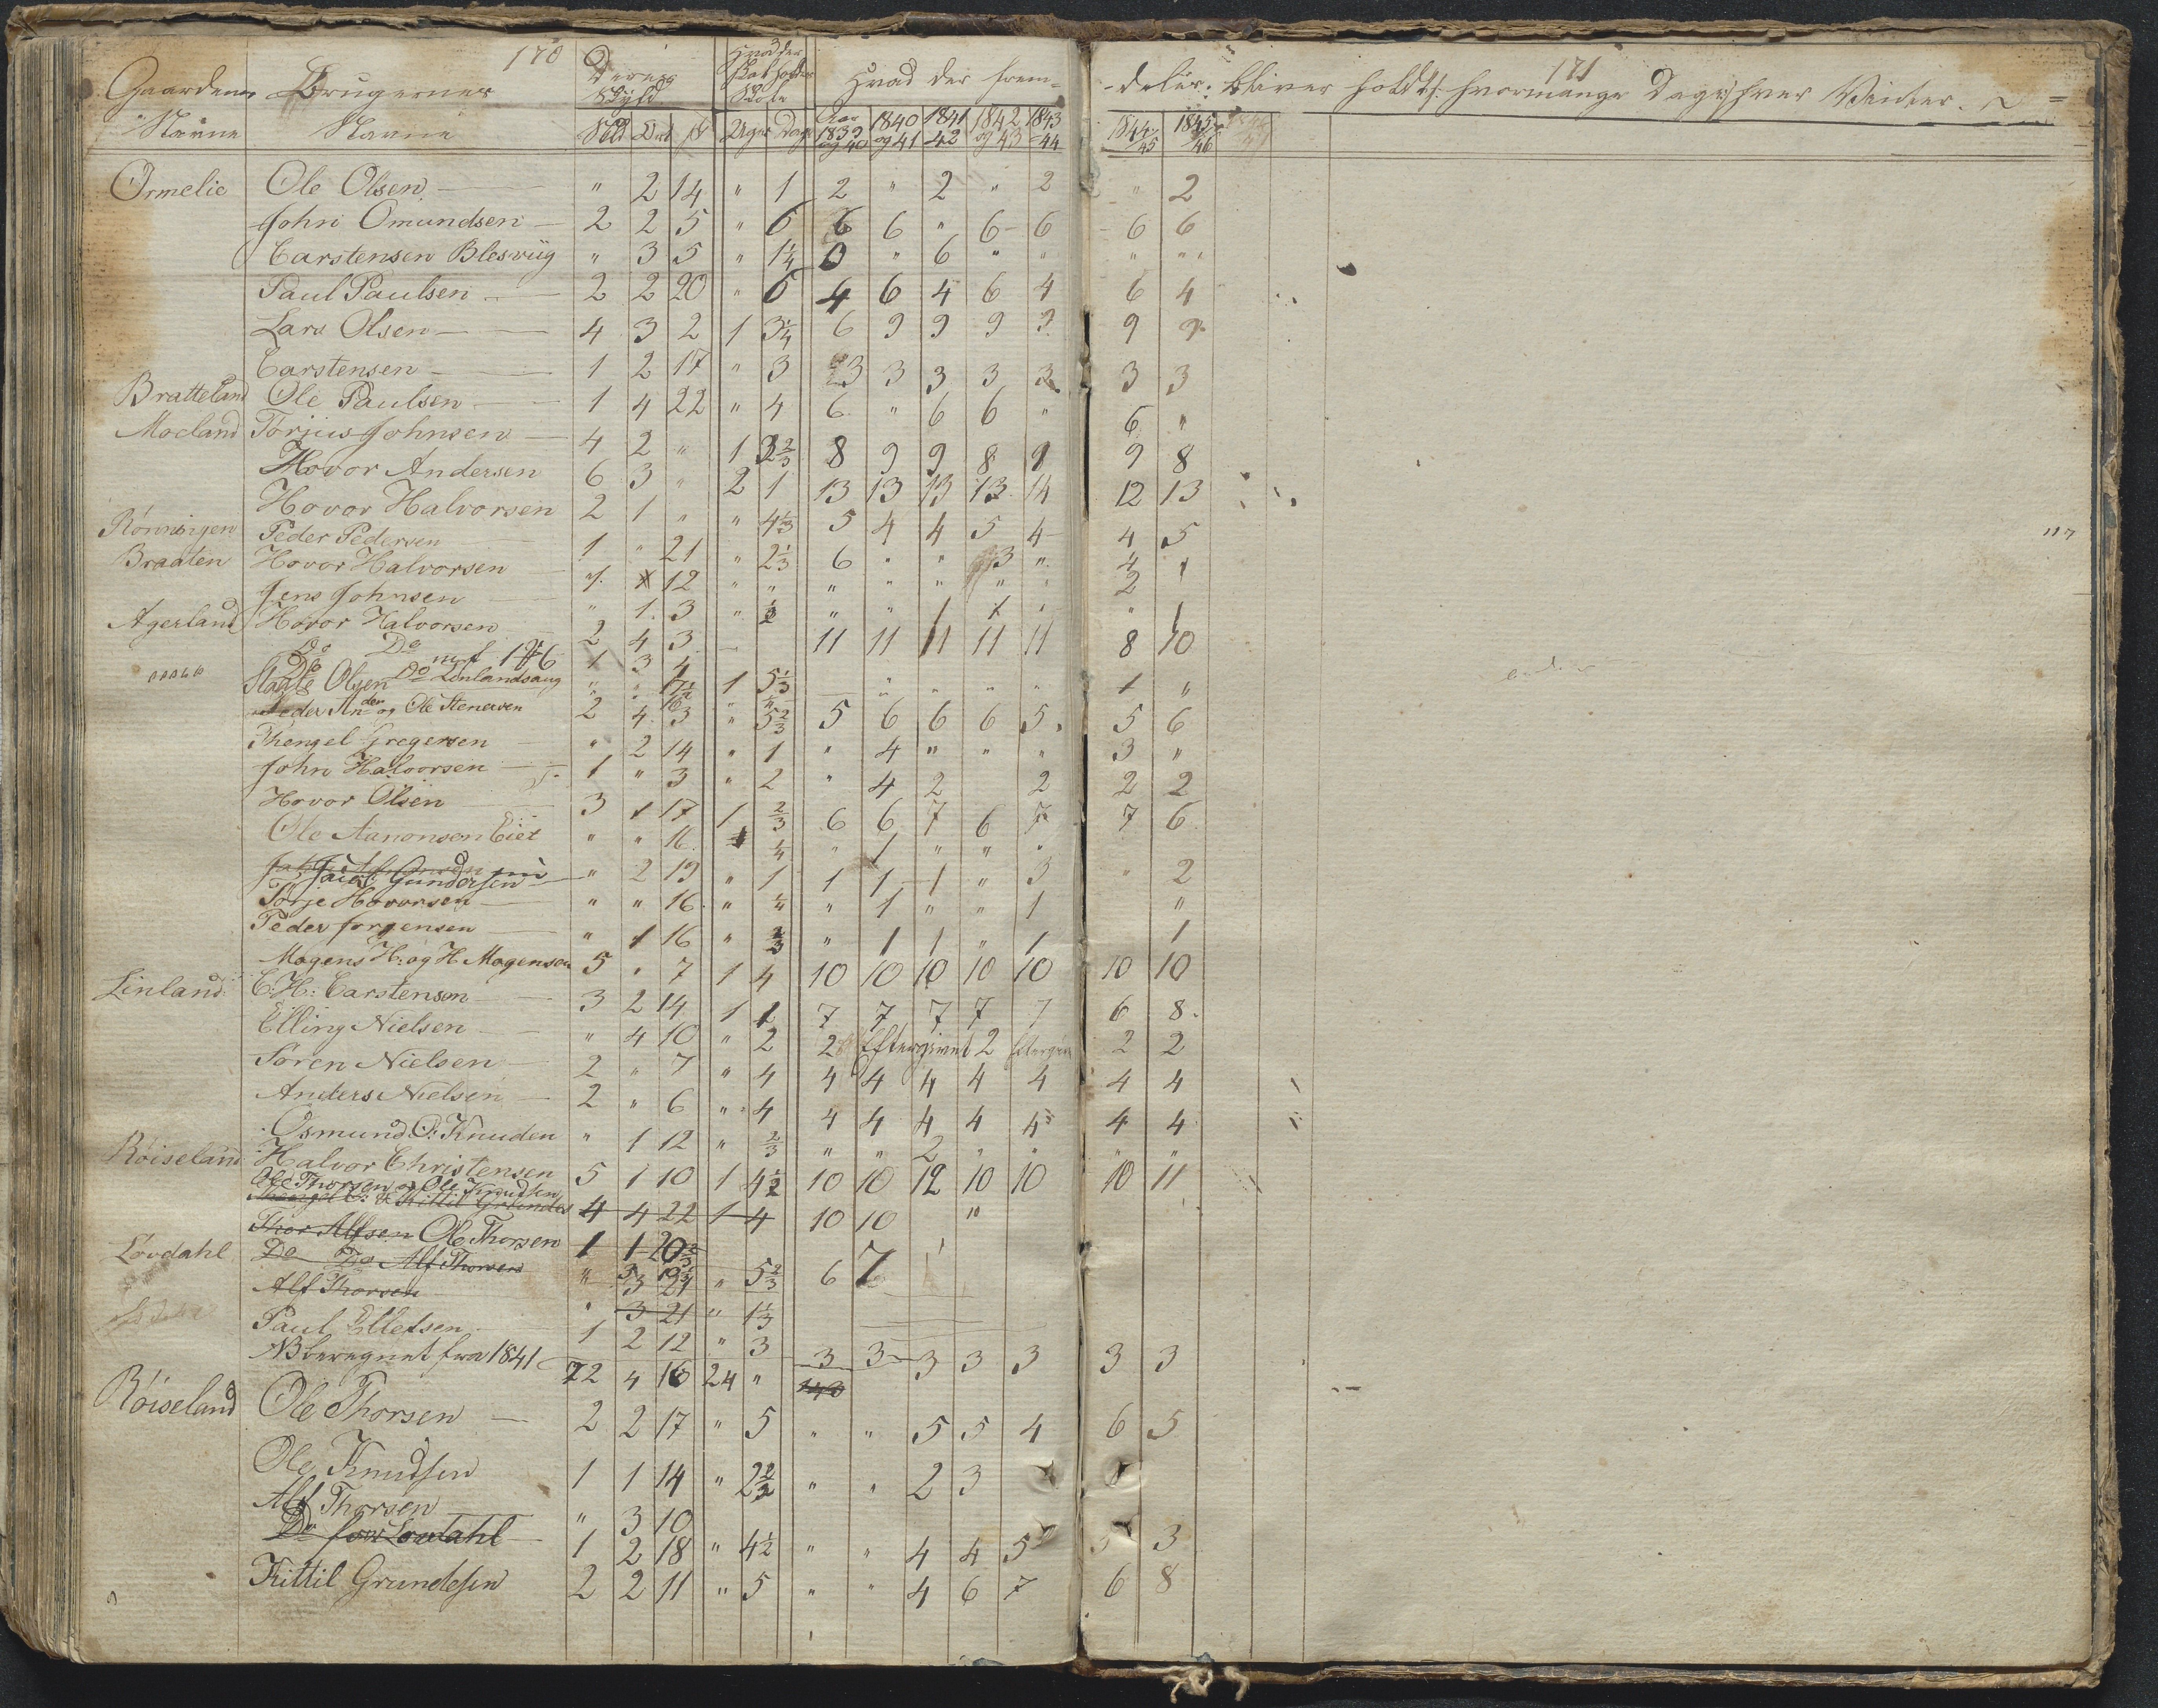 170
171
Gaardenes Brugernes Deres Hvad der Hvad der frem- -deles bliver holdt hvormange Dage hver Vinter.
Navne Navne Skyld Skole
Sæld Uger Dage Aar 1839 og 40 1840 og 41 1841 42 1842 og 43 1843 -44 1844 45 1845 46
Ormelie Ole Olsen " 2 14 " 1 2 " 2 " 2 " 2
John Omundsen 2 2 5 " 6 6 6 " 6 6 6 6
Carstensen Blesvüg " 3 5 " 1¼ 0 " 6 " " " "
Paul Paulsen 2 2 20 " 6 4 6 4 6 4 6 4
Lars Olsen 4 3 2 1 3¼ 6 9 9 9 9 9 9
Carstensen 1 2 17 " 3 3 3 3 3 3 3 3
Bratteland Ole Paulsen 1 4 22 " 4 6 " 6 6 " 6 "
Moeland Torjus Johnsen 4 2 " 1 2⅔ 8 9 9 8 9 9 8
Hovor Andersen 6 3 " 2 1 13 13 13 13 14 12 13
Hovor Halvorsen 2 1 " " 4⅓ 5 4 4 5 4 4 5
Rönningen Peder Pedersen 1 " 21 " 2⅓ 6 " " 3 " 4
Braaten Hovor Halvorsen 12 " " " " " " " 2
Jens Johnsen " 1 3 " " " 1 1 " " 1
Agerland Hovor Halvorsen 2 4 3 11 11 11 11 11 8 10
Do Do 1 3 4
Do Do Linlandsaug
Olsen 1 5⅓ " " " " 1 "
Peder An og Ole Stenersen 2 4 3 " 5⅔ 5 6 6 6 5 5 6
Thengel Gregersen " 2 14 " 1 " 4 " " " 3 "
John Halvorsen 1 " 3 " 2 " 4 2 2 2 2
Hovor Olsen 3 1 17 1 ⅔ 6 6 7 6 7 7 6
Ole Aanonsen Eiet " " 16 ¼ " 1 " " "
Jacob Gundersen " 2 19 " 1 1 1 1 " 3 " 2
Torje Hovorsen " " 16 " ¼ " 1 " " 1 "
Peder Jorgensen " 1 16 " ⅔ " 1 1 " 1 1
Mogens H: og H Mogensen 5 " 7 1 4 10 10 10 10 10 10 10
Linland C: H: Carstensen 3 2 14 1 7 7 7 7 7 6 8
Elling Nielsen " 4 10 " 2 2 Eftergivet 2 2 2
Sören Nielsen 2 " 7 " 4 4 4 4 4 4 4 4
Anders Nielsen 2 " 6 " 4 4 4 4 4 4 4 4
Osmund O: Knuden " 1 12 " ⅔ " " 2 " " " "
Röiseland Halvor Christensen 5 1 10 1 4½ 10 10 12 10 10 10 11
Ole Thorsen og Ole Knudsen
4 4 22 1 4 10 10 "
Thor Alfsen Ole Thorsen 1 1 20
Lövdahl Do Do Alf Thorsen " 3 " 5⅔ 6 7
Alf Thorsen " 3 21 " 1⅓
Paul Elletsen 1 2 12 " 3 3 3 3 3 3 3 3
NB beregnet fra 1841 72 4 16 24 "
Röiseland Ole Thorsen 2 2 17 " 5 " " 5 5 4 6 5
Ole Knudsen 1 1 14 " 2⅔ " " 2 3
Alf Thorsen " 3 10
Do Lovdahl 1 2 18 " 4½ " " 4 4 5 3
Kittil Grundesen 2 2 11 " 5 " " 4 6 7 6 8